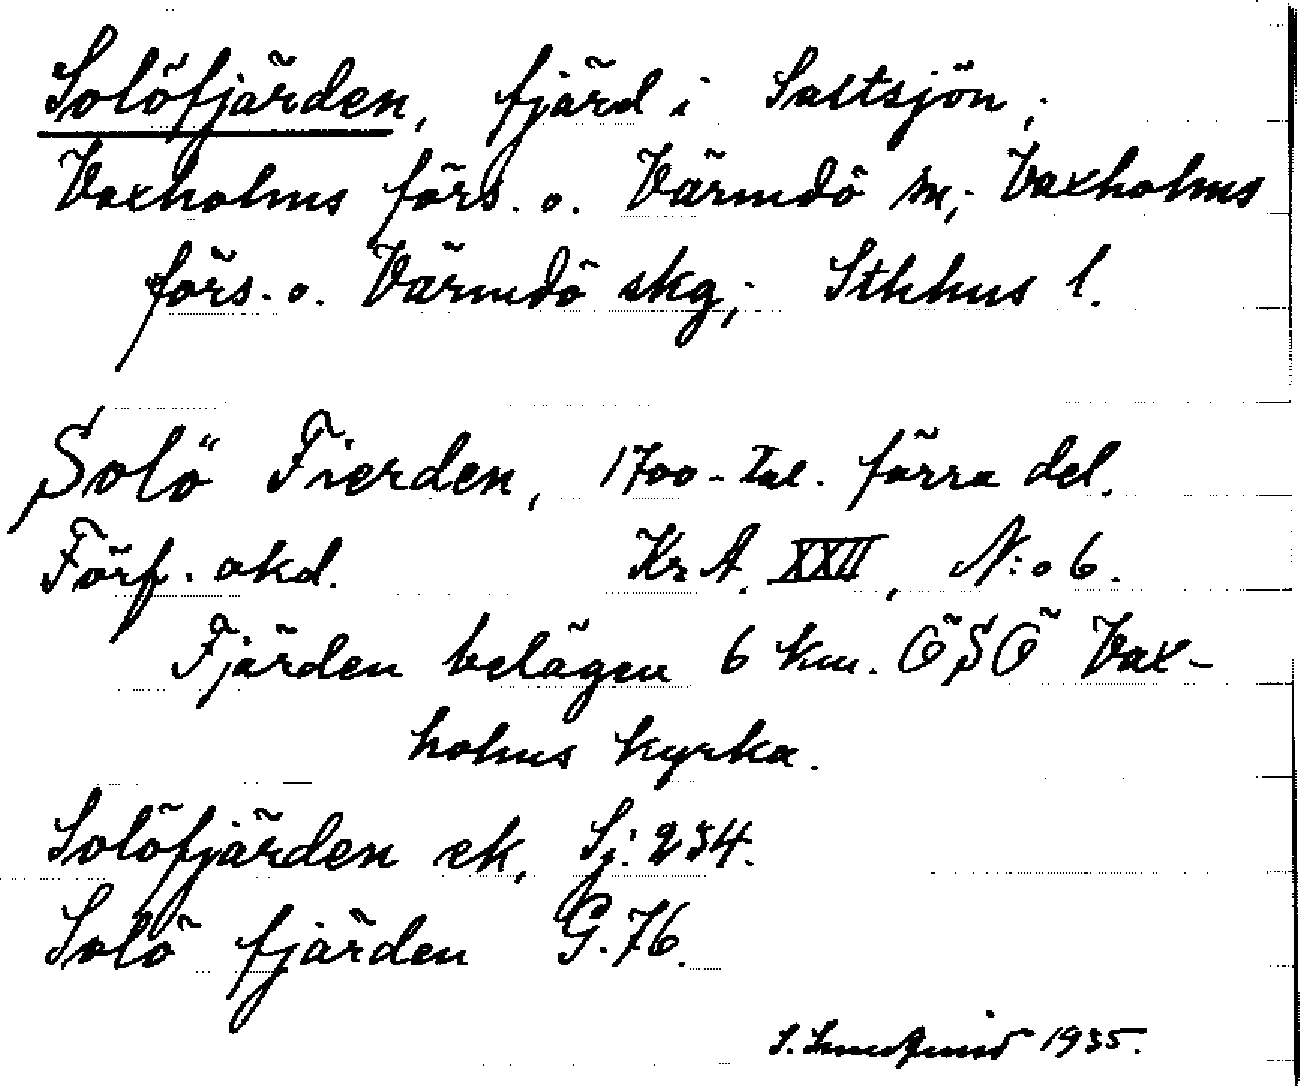 Solöfjärden, fjärd i Saltsjön;
Vaxholms förs. o. Värmdö sn; Vaxholms
förs. o. Värmdö skg; Sthlms l.
Solö Fierden, 1700-tal. förra del.
Förf. okd. Kr A. XXII, N:o 6.
Fjärden belägen 6 km. ÖSÖ Vax-
holms kyrka.
Solöfjärden ek. Sj. 234.
Solö fjärden G. 76.
S. 1935.